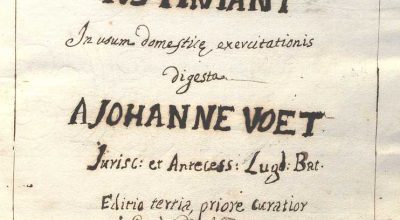 In usum domesticę exercitationis
digesta
A JOHANNE VOET
Jurisc: et Antecess: Lugd: Bat.
Editio tertia, priore curatior